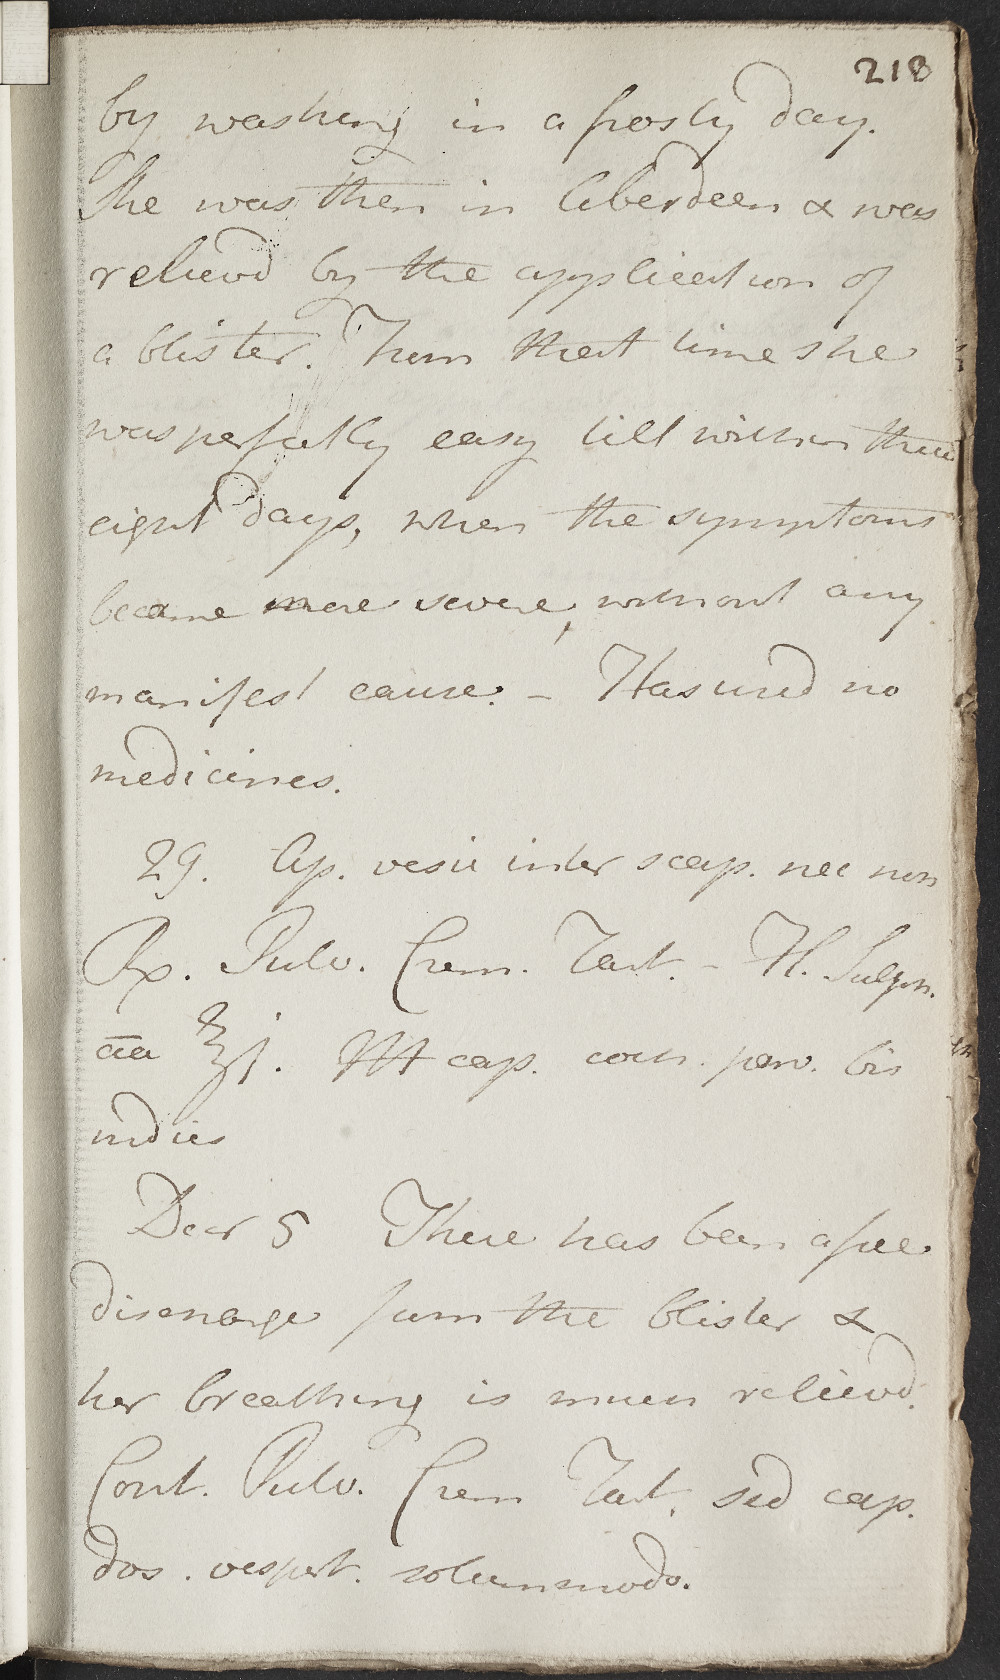 213
by washing in a frosty day.
She was then in Aberdeen & was
relievd by the application of
a blister. From that time she
was perfectly easy till within these
eight days, when the symptoms
became more severe, without any
manifest cause. - Has used no
medicines.
29. Ap. vesic inter scap. nec non
Rx. Pulv. Crem. Tart. - Fl. Sulph.
āā ℥j. M cap. coch. parv. bis
indies
Decr 5 There has been a free
discharge from the blister &
her breathing is much relievd.
Cont. Pulv. Crem Tart. sed cap.
dos. vespert. solummodo.